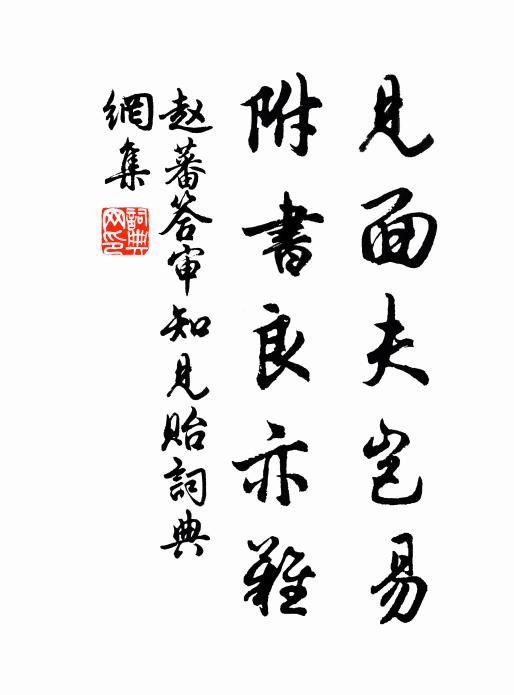 見面夫岂易
附書良亦難
赵蕃答审知見貽詞典
網集
詞典网印